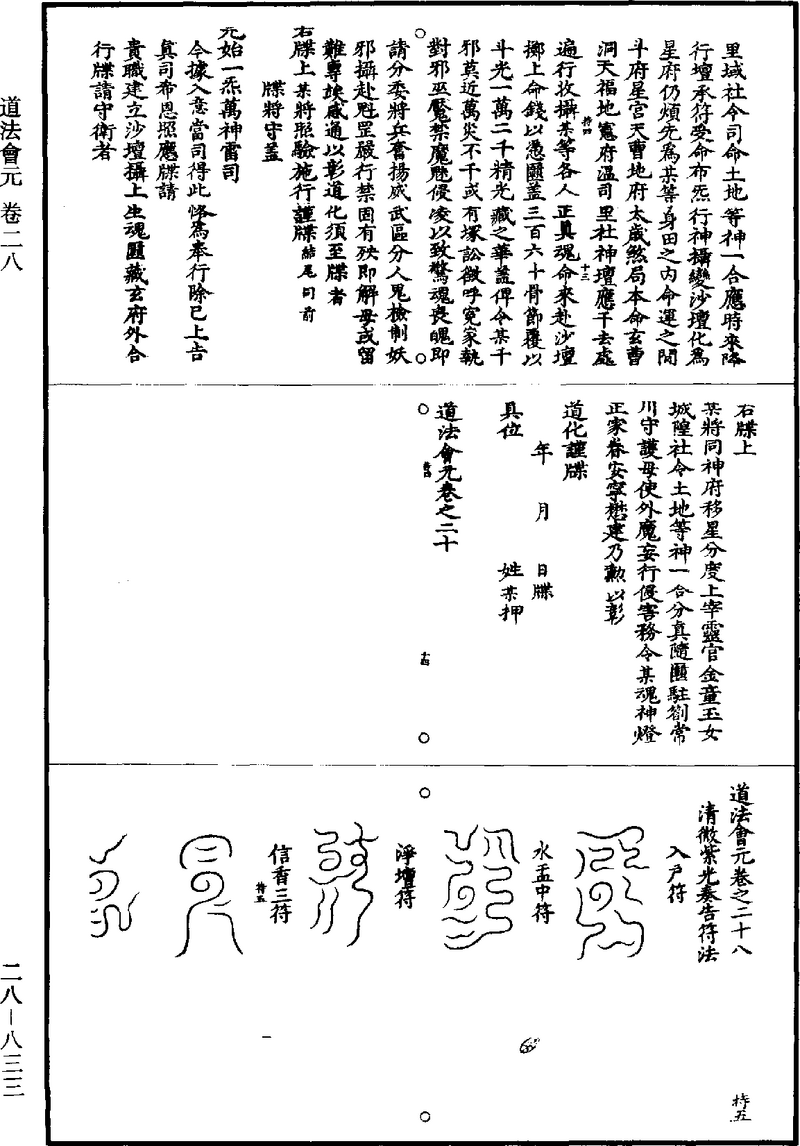 里域社令司命土地等神一合應時來降
行壇承符受命布炁行神攝變沙壇化為
星府仍煩先為某等身田之內命運之間
斗府星宮天曹地府太歲煞局本命玄曹
洞天福地寃府溫司里社神壇應干去處
遍行收攝某等各人正真魂命來赴沙壇
擲上命錢以憑匾蓋三百六十骨節覆以
斗光一萬二千精光藏之華蓋俾令某千
邪莫近萬災不干或有塚訟徵呼冤家執
對邪巫魘禁魔魅侵凌以致驚魂喪魄即
請分委將兵奮揚威武區分人鬼檢制妖
邪攝赴魁罡嚴行禁固有殃即解毋或留
難專竢感通以彰道化須至牒者
右牒上某將照驗施行謹牒結尾同前
牒將守蓋
元始一炁萬神雷司
今據入意當司得此恪為奉行除已上告
真司布恩照應牒請
貴職建立沙壇攝上生魂匾藏玄府外合
行牒請守衛者
右牒上
某將同神府移星分度上宰靈官金童玉女
城隍社令土地等神一合分真隨匾駐劄常
川守護毋使外魔妄行侵害務令某魂神燈
正家眷安寧懋建乃勲以彰
道化謹牒
年 月 日牒
具位 姓某押
道法會元卷之二十
道法會元卷之二十八
清微紫光奏告符法
入戶符
水盂中符
淨壇符
信香三符
持五
道法會元 卷二八
二八－八三三